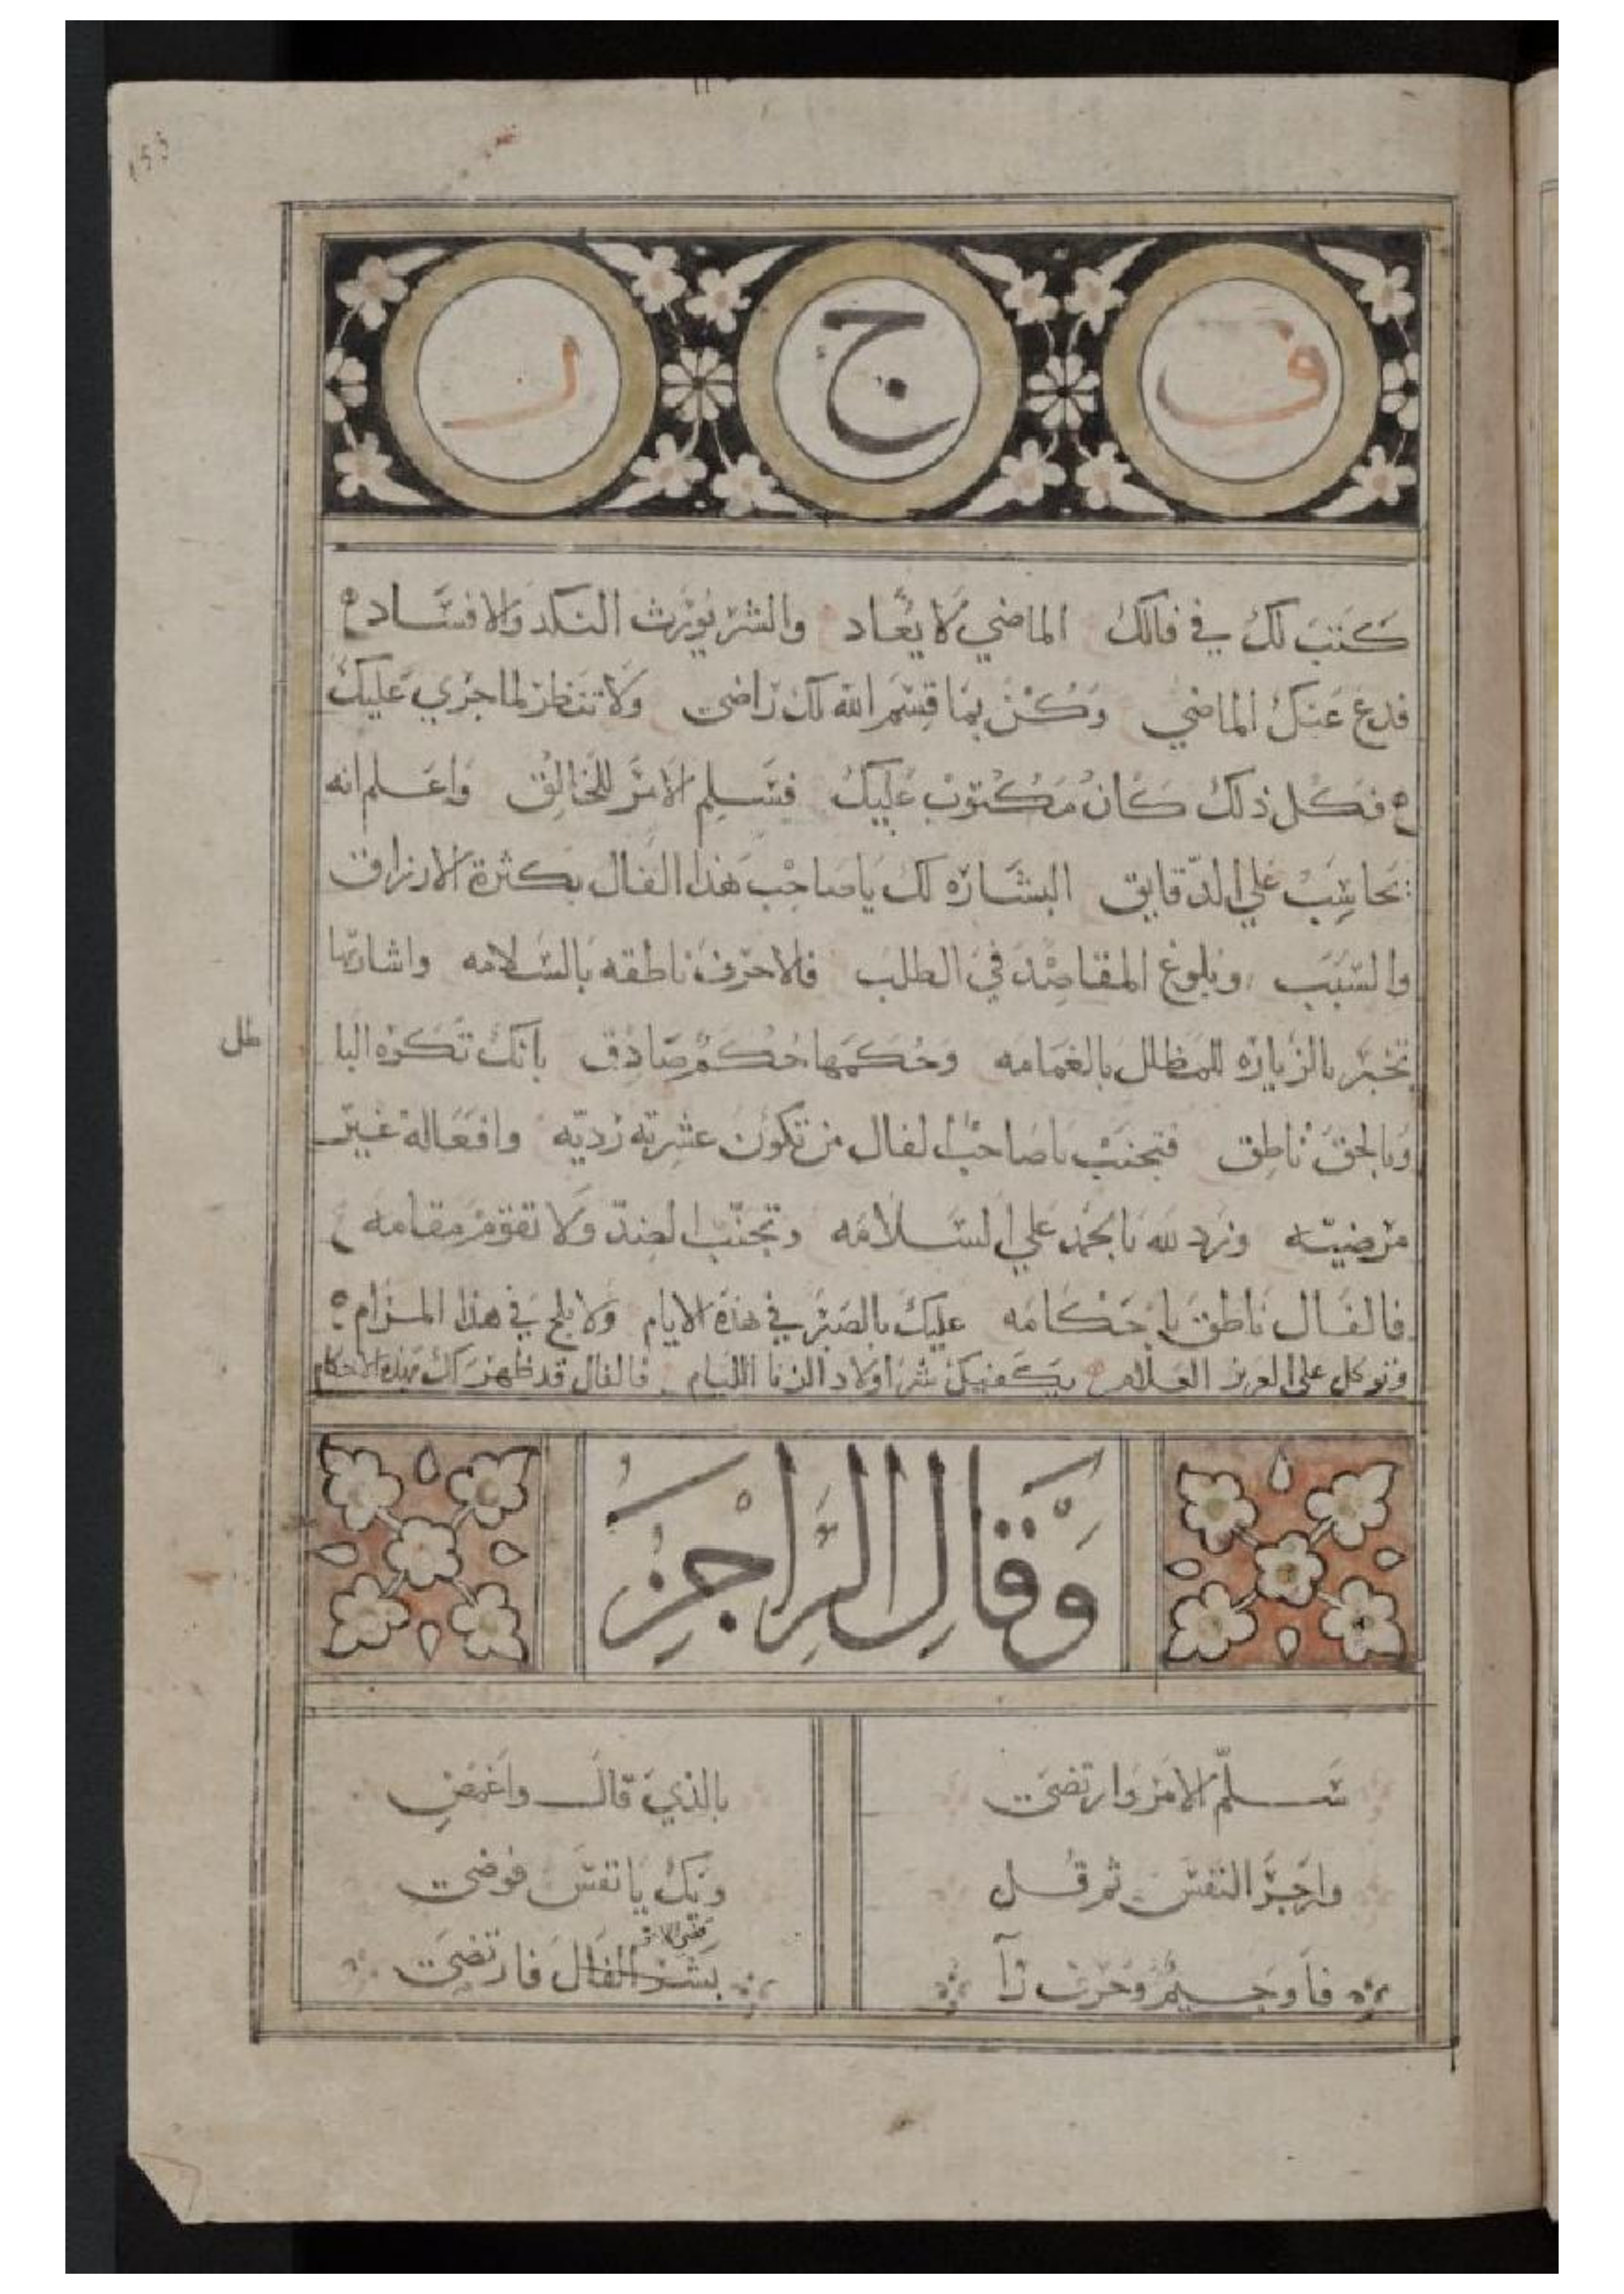 ف ج ر
كتب لك في فالك الماضي لا يعاد والشر يورث النكد والافساد
فدع عنك الماضي وكن بما قسم الله لك راضي ولا تنظر لما جري عليك
فكل ذلك كان مكتوب عليك فسلم الامر للخالق واعلم انه
يحاسب علي الدقايق البشاره لك يا صاحب هذا الفال بكثرة الارزاق
والسبب وبلوغ المقاصد في الطلب فالاحرف ناطقه بالسلامه واشارتها
تخبر بالزياره للمظلل بالغمامه وحكمها حكم صادق بانك تكره البا
طل
وبالحق ناطق فتجنب يا صاحب الفال من تكون عشرته رديه وافعاله غير
مرضيه وزد لله بالحمد علي السلامه وتجنب الضد ولا تقوم مقامه
فالفال ناطق باحكامه عليك بالصبر في هذه الايام ولا يلج في هذا المرام
وتوكل علي العزيز العلام يكفيك شر اولاد الزنا الليام فالفال قد ظهر لك بهذه الاحكام
وقال الراجز
سلم الامر وارتضي بالذي قال واغمض
وازجر النفس ثم قل ويك يا نفس فوضي
فا وجيم وحرف را بشر الفال فارتضي
155